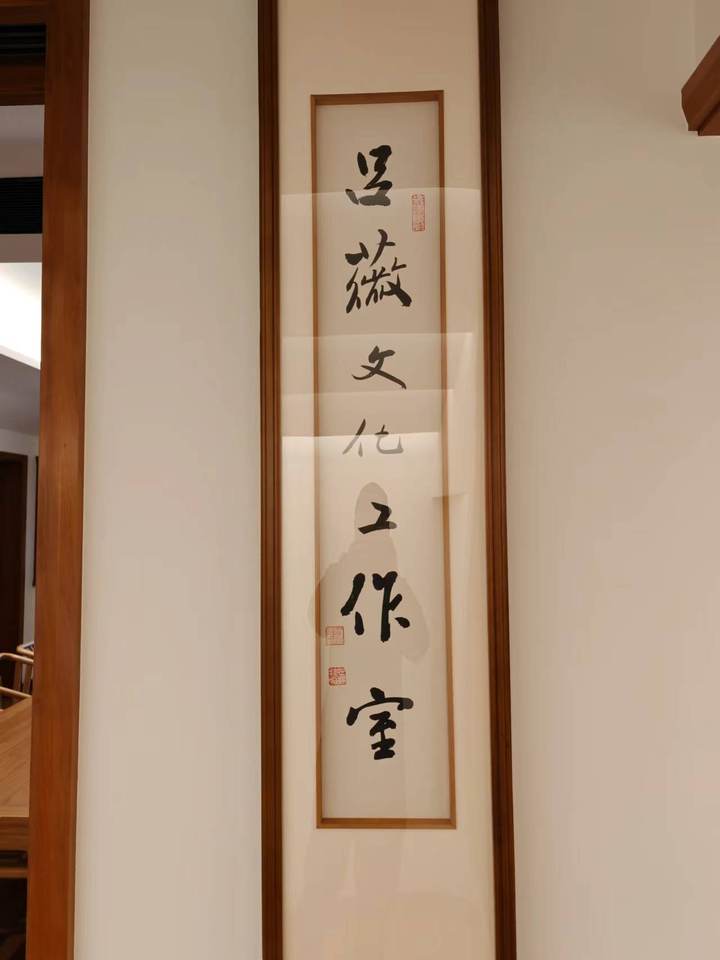 吕薇文化工作室